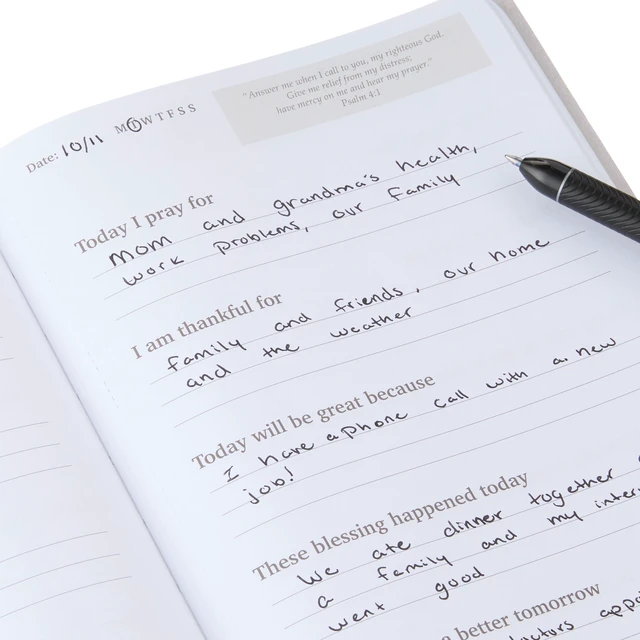 "Answer me when I call to you, my righteous God.
Give me relief from my distress;
have mercy on me and hear my prayer."
Psalm 4:1
Date: 10/11 M T W T F S S
Today I pray for
Mom and grandma's health,
work problems, our family
I am thankful for
family and friends, our home
and the weather
Today will be great because
I have a phone call with a new
job!
These blessing happened today
We ate dinner together
a family and my
went good
better tomorrow